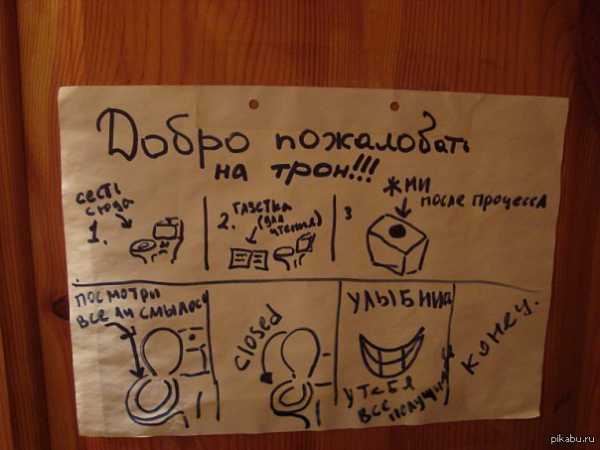 Добро пожаловать
на трон!!!
сесть
сюда
1.
2.
газетка
(для
чтения)
3
жми
после процесса
посмотри
все ли смылось
closed
улыбнись
у тебя
все
получилось
конец.
pikabu.ru